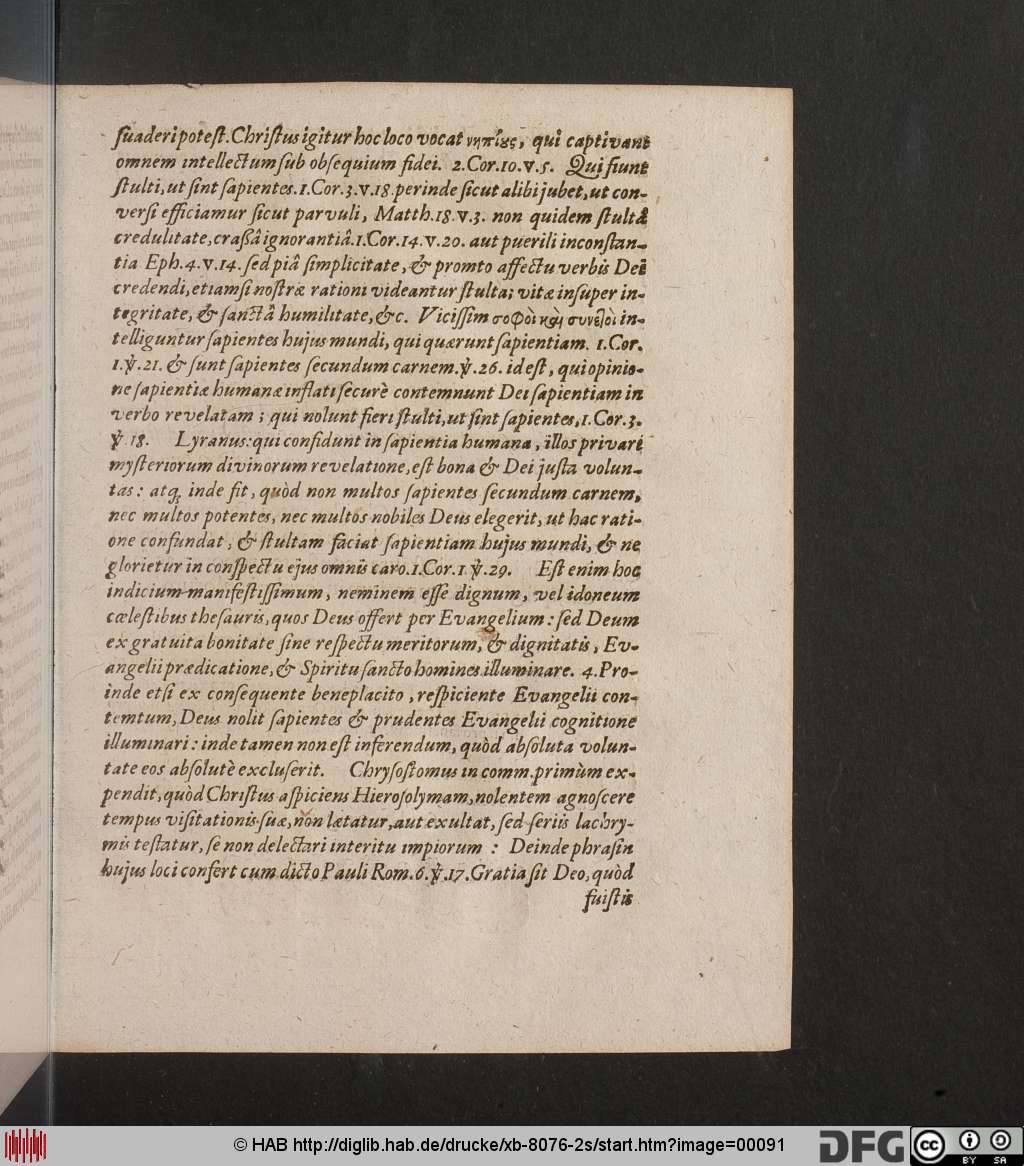 ſuaderi poteſt. Chriſtus igitur hoc loco vocat νηπίȣς, qui captivant
omnem intellectum ſub obſequium fidei. 2. Cor. 10. v. 5. Qui fiunt
ſtulti, ut ſint ſapientes. 1. Cor. 3. v. 18 perinde ſicut alibi jubet, ut con-
verſi efficiamur ſicut parvuli, Matth. 18. v. 3. non quidem ſtultâ
credulitate, craßâ ignorantiâ. 1. Cor. 14. v. 20. aut puerili inconſtan-
tia Eph. 4. v. 14. ſed piâ ſimplicitate, & promto affectu verbis Dei
credendi, etiamſi noſtræ rationi videantur ſtulta; vitæ inſuper in-
tegritate, & ſanctâ humilitate, &c. Viciſſim σοφοὶ καὶ συνετοὶ in-
telliguntur ſapientes hujus mundi, qui quærunt ſapientiam. 1. Cor.
1. ỳ. 21. & ſunt ſapientes ſecundum carnem. ỳ. 26. id eſt, qui opinio-
ne ſapientiæ humanæ inflati ſecurè contemnunt Dei ſapientiam in
verbo revelatam; qui nolunt fieri ſtulti, ut ſint ſapientes, 1. Cor. 3.
ỳ. 18. Lyranus: qui confidunt in ſapientia humana, illos privari
myſteriorum divinorum revelatione, eſt bona & Dei juſta volun-
tas: atq; inde fit, quòd non multos ſapientes ſecundum carnem,
nec multos potentes, nec multos nobiles Deus elegerit, ut hac rati-
one confundat, & ſtultam faciat ſapientiam hujus mundi, & ne
glorietur in conſpectu ejus omnis caro. 1. Cor. 1. ỳ. 29. Eſt enim hoc
indicium manifeſtiſſimum, neminem eſſe dignum, vel idoneum
cœleſtibus theſauris, quos Deus offert per Evangelium: ſed Deum
ex gratuita bonitate ſine reſpectu meritorum, & dignitatis, Ev-
angelii prædicatione, & Spiritu ſancto homines illuminare. 4. Pro-
inde etſi ex conſequente beneplacito, reſpiciente Evangelii con-
temtum, Deus nolit ſapientes & prudentes Evangelii cognitione
illuminari: inde tamen non eſt inferendum, quòd abſoluta volun-
tate eos abſolutè excluſerit. Chryſoſtomus in comm. primùm ex-
pendit, quòd Chriſtus aſpiciens Hieroſolymam, nolentem agnoſcere
tempus viſitationis ſuæ, non lætatur, aut exultat, ſed ſeriis lachry-
mis teſtatur, ſe non delectari interitu impiorum: Deinde phraſin
hujus loci confert cum dicto Pauli Rom. 6. ỳ. 17. Gratia ſit Deo, quòd
fuiſtis
© HAB http://diglib.hab.de/drucke/xb-8076-2s/start.htm?image=00091
DFG
cc BY SA